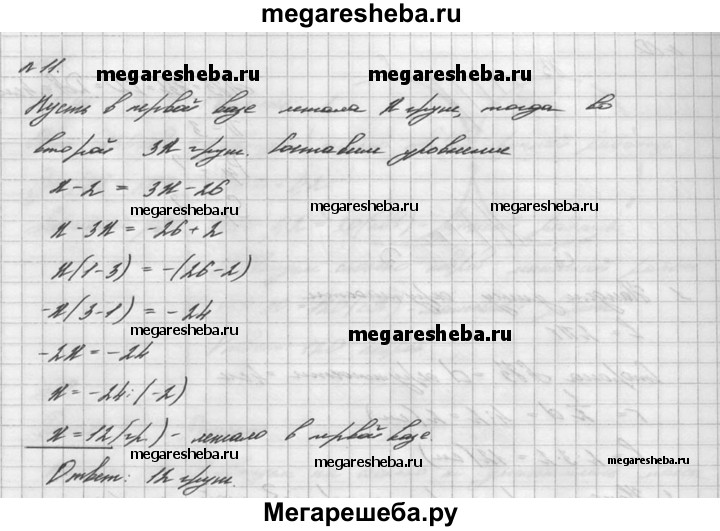 megaresheba.ru
№ 11.
megaresheba.ru megaresheba.ru
Пусть в первой вазе лежала х груш, тогда во
второй 3х груш. Составим уровнение
х - 2 = 3х - 26
megaresheba.ru megaresheba.ru megaresheba.ru
х - 3х = -26 + 2
х(1-3) = -(26-2)
-х(3-1) = -24
megaresheba.ru megaresheba.ru
-2х = -24
х = -24:(-2)
х = 12(гр) - лежало в первой вазе
megaresheba.ru megaresheba.ru megaresheba.ru
Ответ: 12 груш.
Мегарешеба.ру